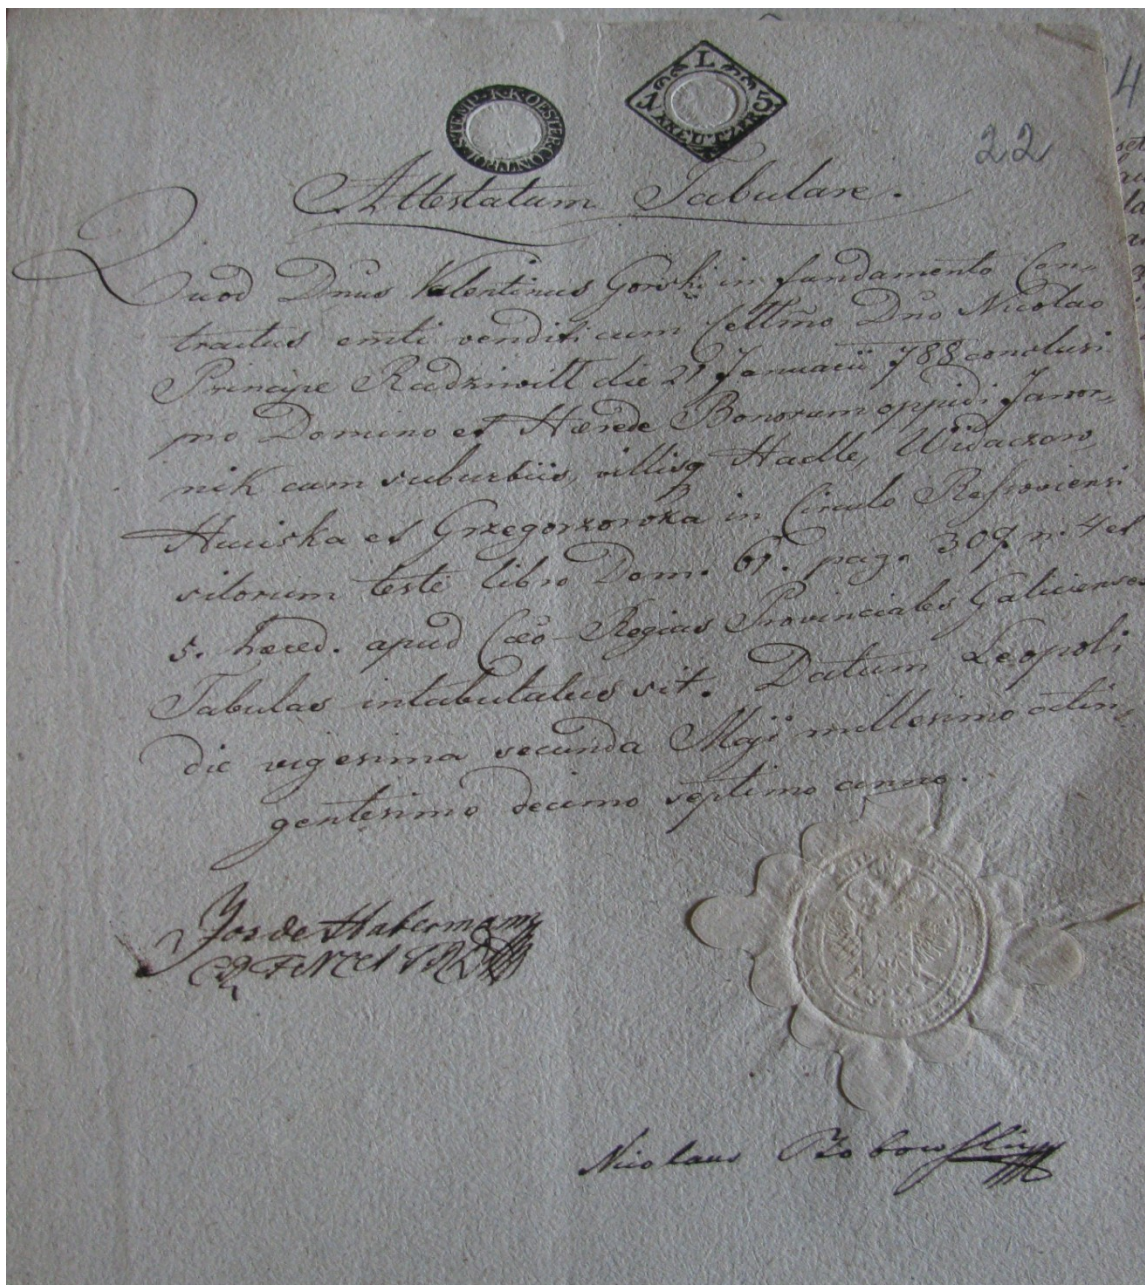 STEMP·K·K·OESTER·CONTROL·
L
15
KREUTZER
22
Attestatum Tabulare.
Quod Dnus Valentinus Gorski in fundamento Con„
tractus emti venditi cum Cellmo Dno Nicolao
Principe Radziwill die 21 Januarii 788 conclusi
pro Domino et Hærede Bonorum oppidi Jawor„
nik cum suburbiis, villisq Hadle, Widaczow
Huciska et Grzegorzowka in Circulo Ressoviensi
sitorum teste libro Dom. 61. pag. 307 n. 4 et
5. hæred. apud Cæo Regias Provinciales Galicienses
Tabulas intabulatus sit. Datum Leopoli
die vigesima secunda Maji millesimo octin„
gentesimo decimo septimo anno.
Jos de Habermann
Nicolaus